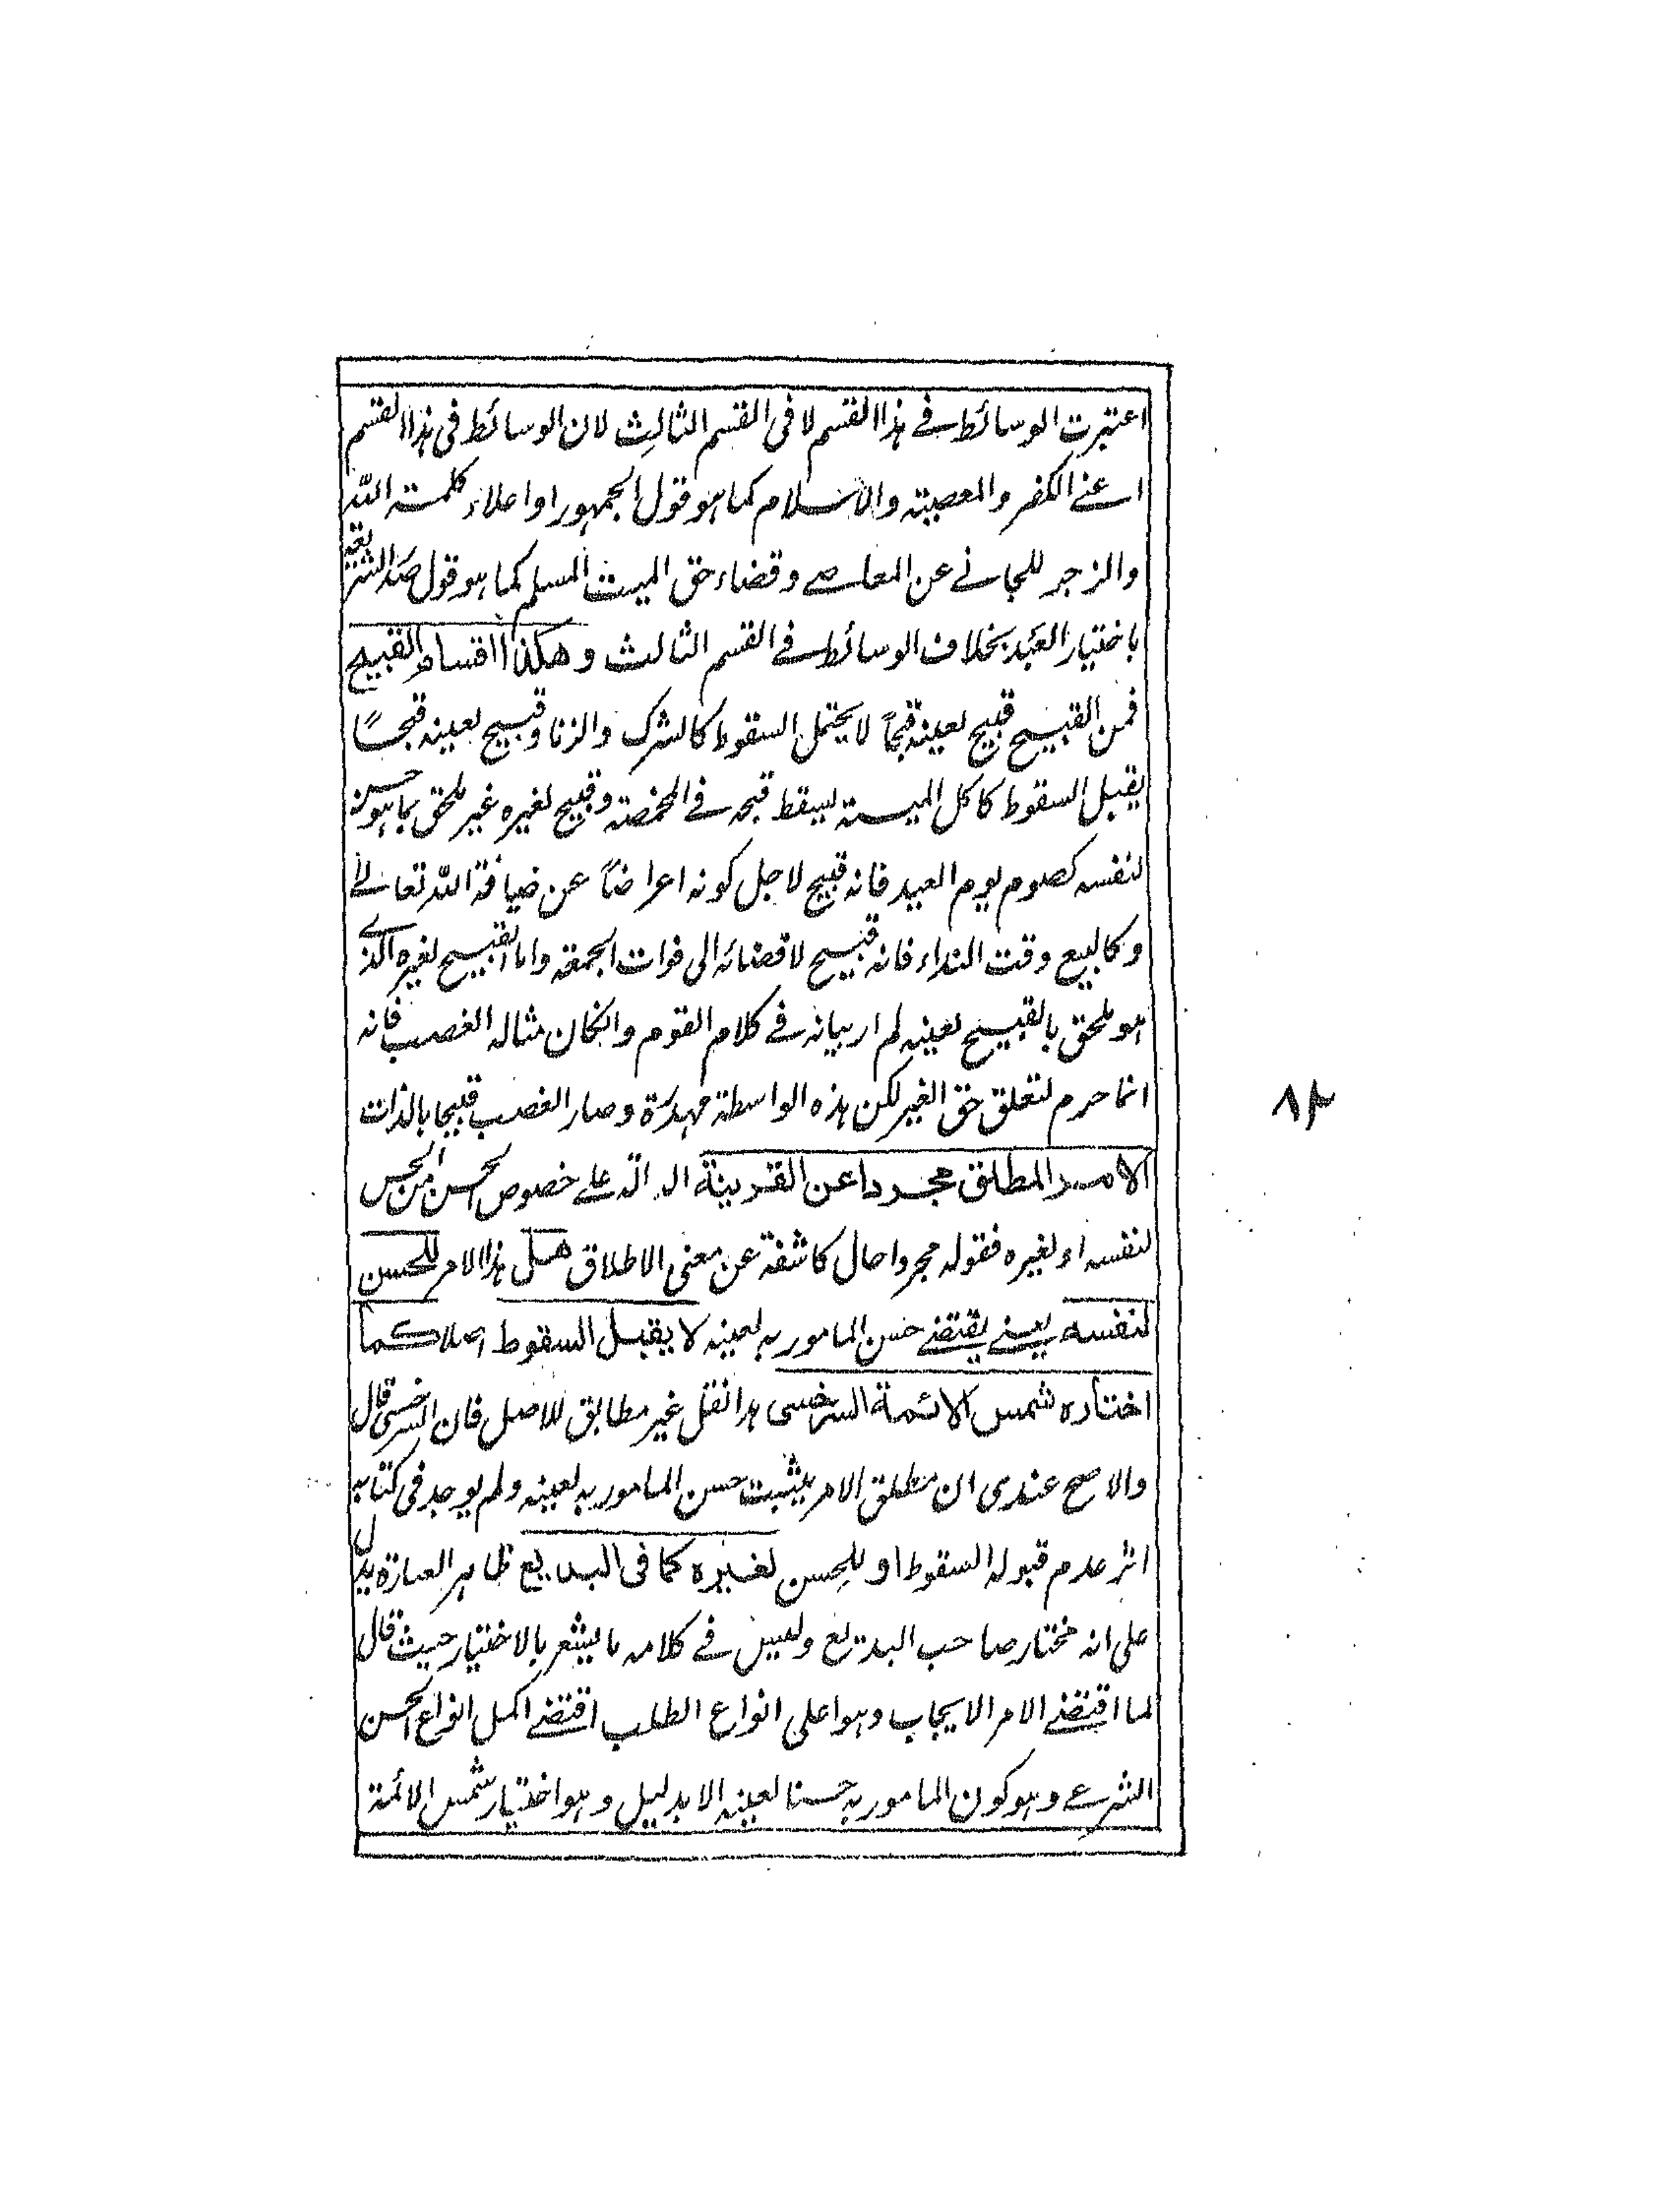 اعتبرت الوسائط في هذا القسم لا في القسم الثالث لان الوسائط في هذا القسم
اعني الكفر والمعصية والاسلام كما هو قول الجمهور او اعلاء كلمة الله
والزجر للجاني عن المعاصي وقضاء حق الميت المسلم كما هو قول صدر الشريعة
باختيار العبد بخلاف الوسائط في القسم الثالث وهكذا اقسام القبيح
فمن القبيح قبيح لعينه قبحاً لا يحتمل السقوط كالشرك والزنا وقبيح لعينه قبحاً
يقبل السقوط كاكل الميتة يسقط قبحه في المخمصة وقبيح لغيره غير ملحق بما هو حسن
لنفسه كصوم يوم العيد فانه قبيح لاجل كونه اعراضاً عن ضيافة الله تعالى
وكالبيع وقت النداء فانه قبيح لافضائه الى فوات الجمعة واما القبيح لغيره الذي
هو ملحق بالقبيح لعينه لم ار بيانه في كلام القوم والكان مثاله الغصب فانه
انما حرم لتعلق حق الغير لكن هذه الواسطة مهدرة وصار الغصب قبيحا بالذات
الامر المطلق مجردا عن القرينة الدالة على خصوص الحسن من الحسن
لنفسه او لغيره فقوله مجردا حال كاشفة عن معنى الاطلاق هل هذا الامر للحسن
لنفسه يعني يقتضي حسن المامور به لعينه لا يقبل السقوط اصلا كما
اختاره شمس الائمة السرخسي هذا نقل غير مطابق للاصل فان السرخسي قال
والاصح عندي ان مطلق الامر يثبت حسن المامور به لعينه ولم يوجد في كتابه
اثر عدم قبوله السقوط او للحسن لغيره كما في البديع ظاهر العبارة يدل
على انه مختار صاحب البديع وليس في كلامه ما يشعر بالاختيار حيث قال
لما اقتضي الامر الايجاب وهو اعلى انواع الطلب اقتضي اكمل انواع الحسن
الشرعي وهو كون المامور به حسنا لعينه الا بدليل وهو اختيار شمس الائمة